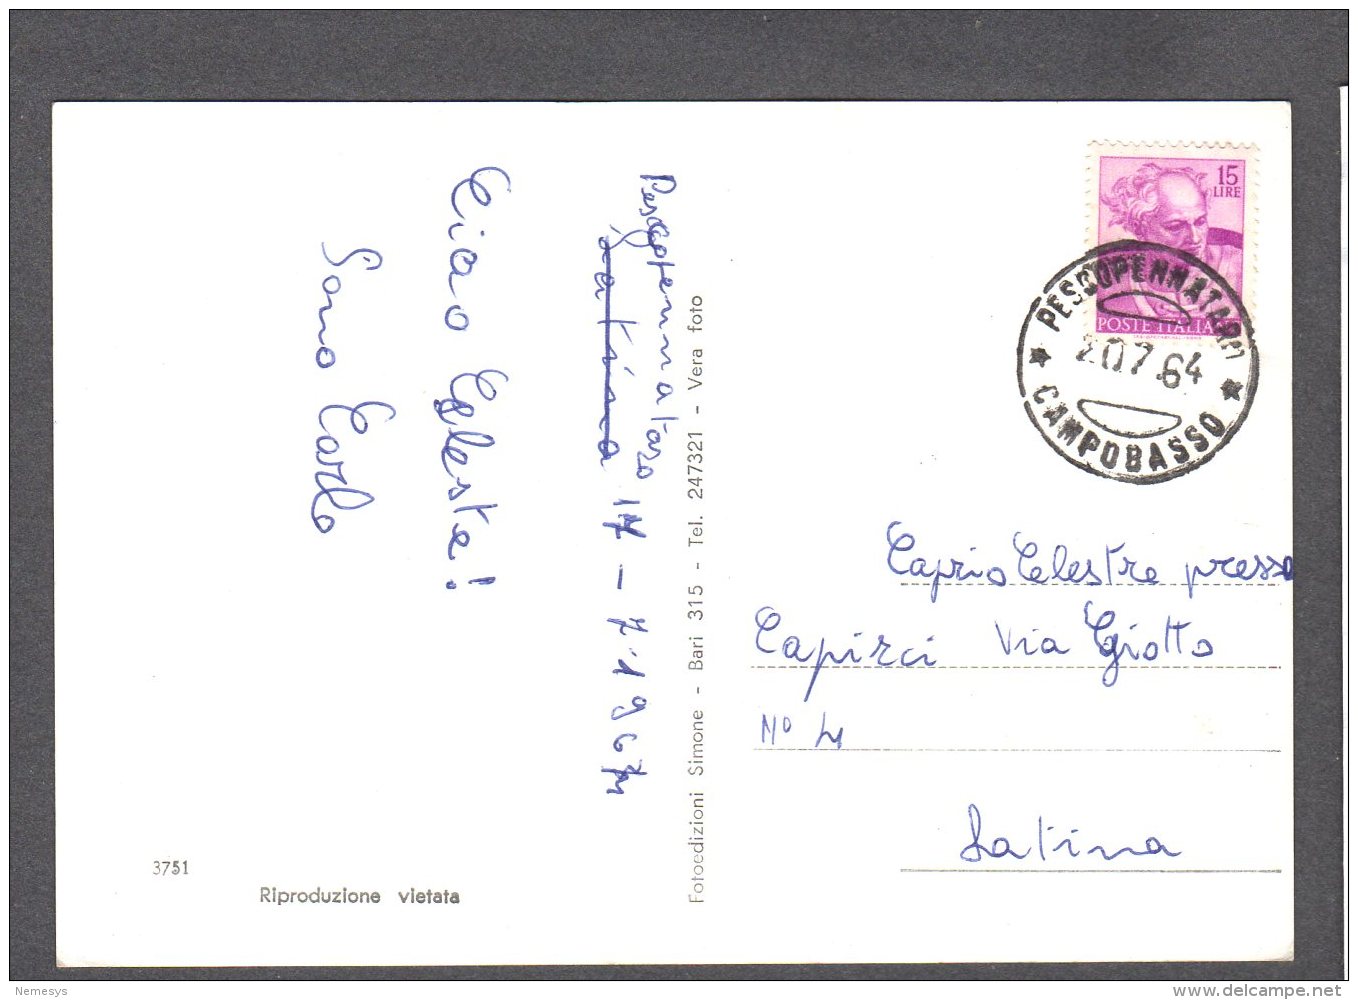 Pescopennataro
Latina 17-7-1964
Ciao Egleste!
Sono Carlo
3751
Riproduzione vietata
Fotoedizioni Simone - Bari 315 - Tel. 247321 - Vera foto
15
LIRE
POSTE ITALIANE
PESCOPENNATARO
20.7.64
CAMPOBASSO
Caprio Celestre presso
Capirci Via Giotto
N° 4
Latina
Nemesys
www.delcampe.net